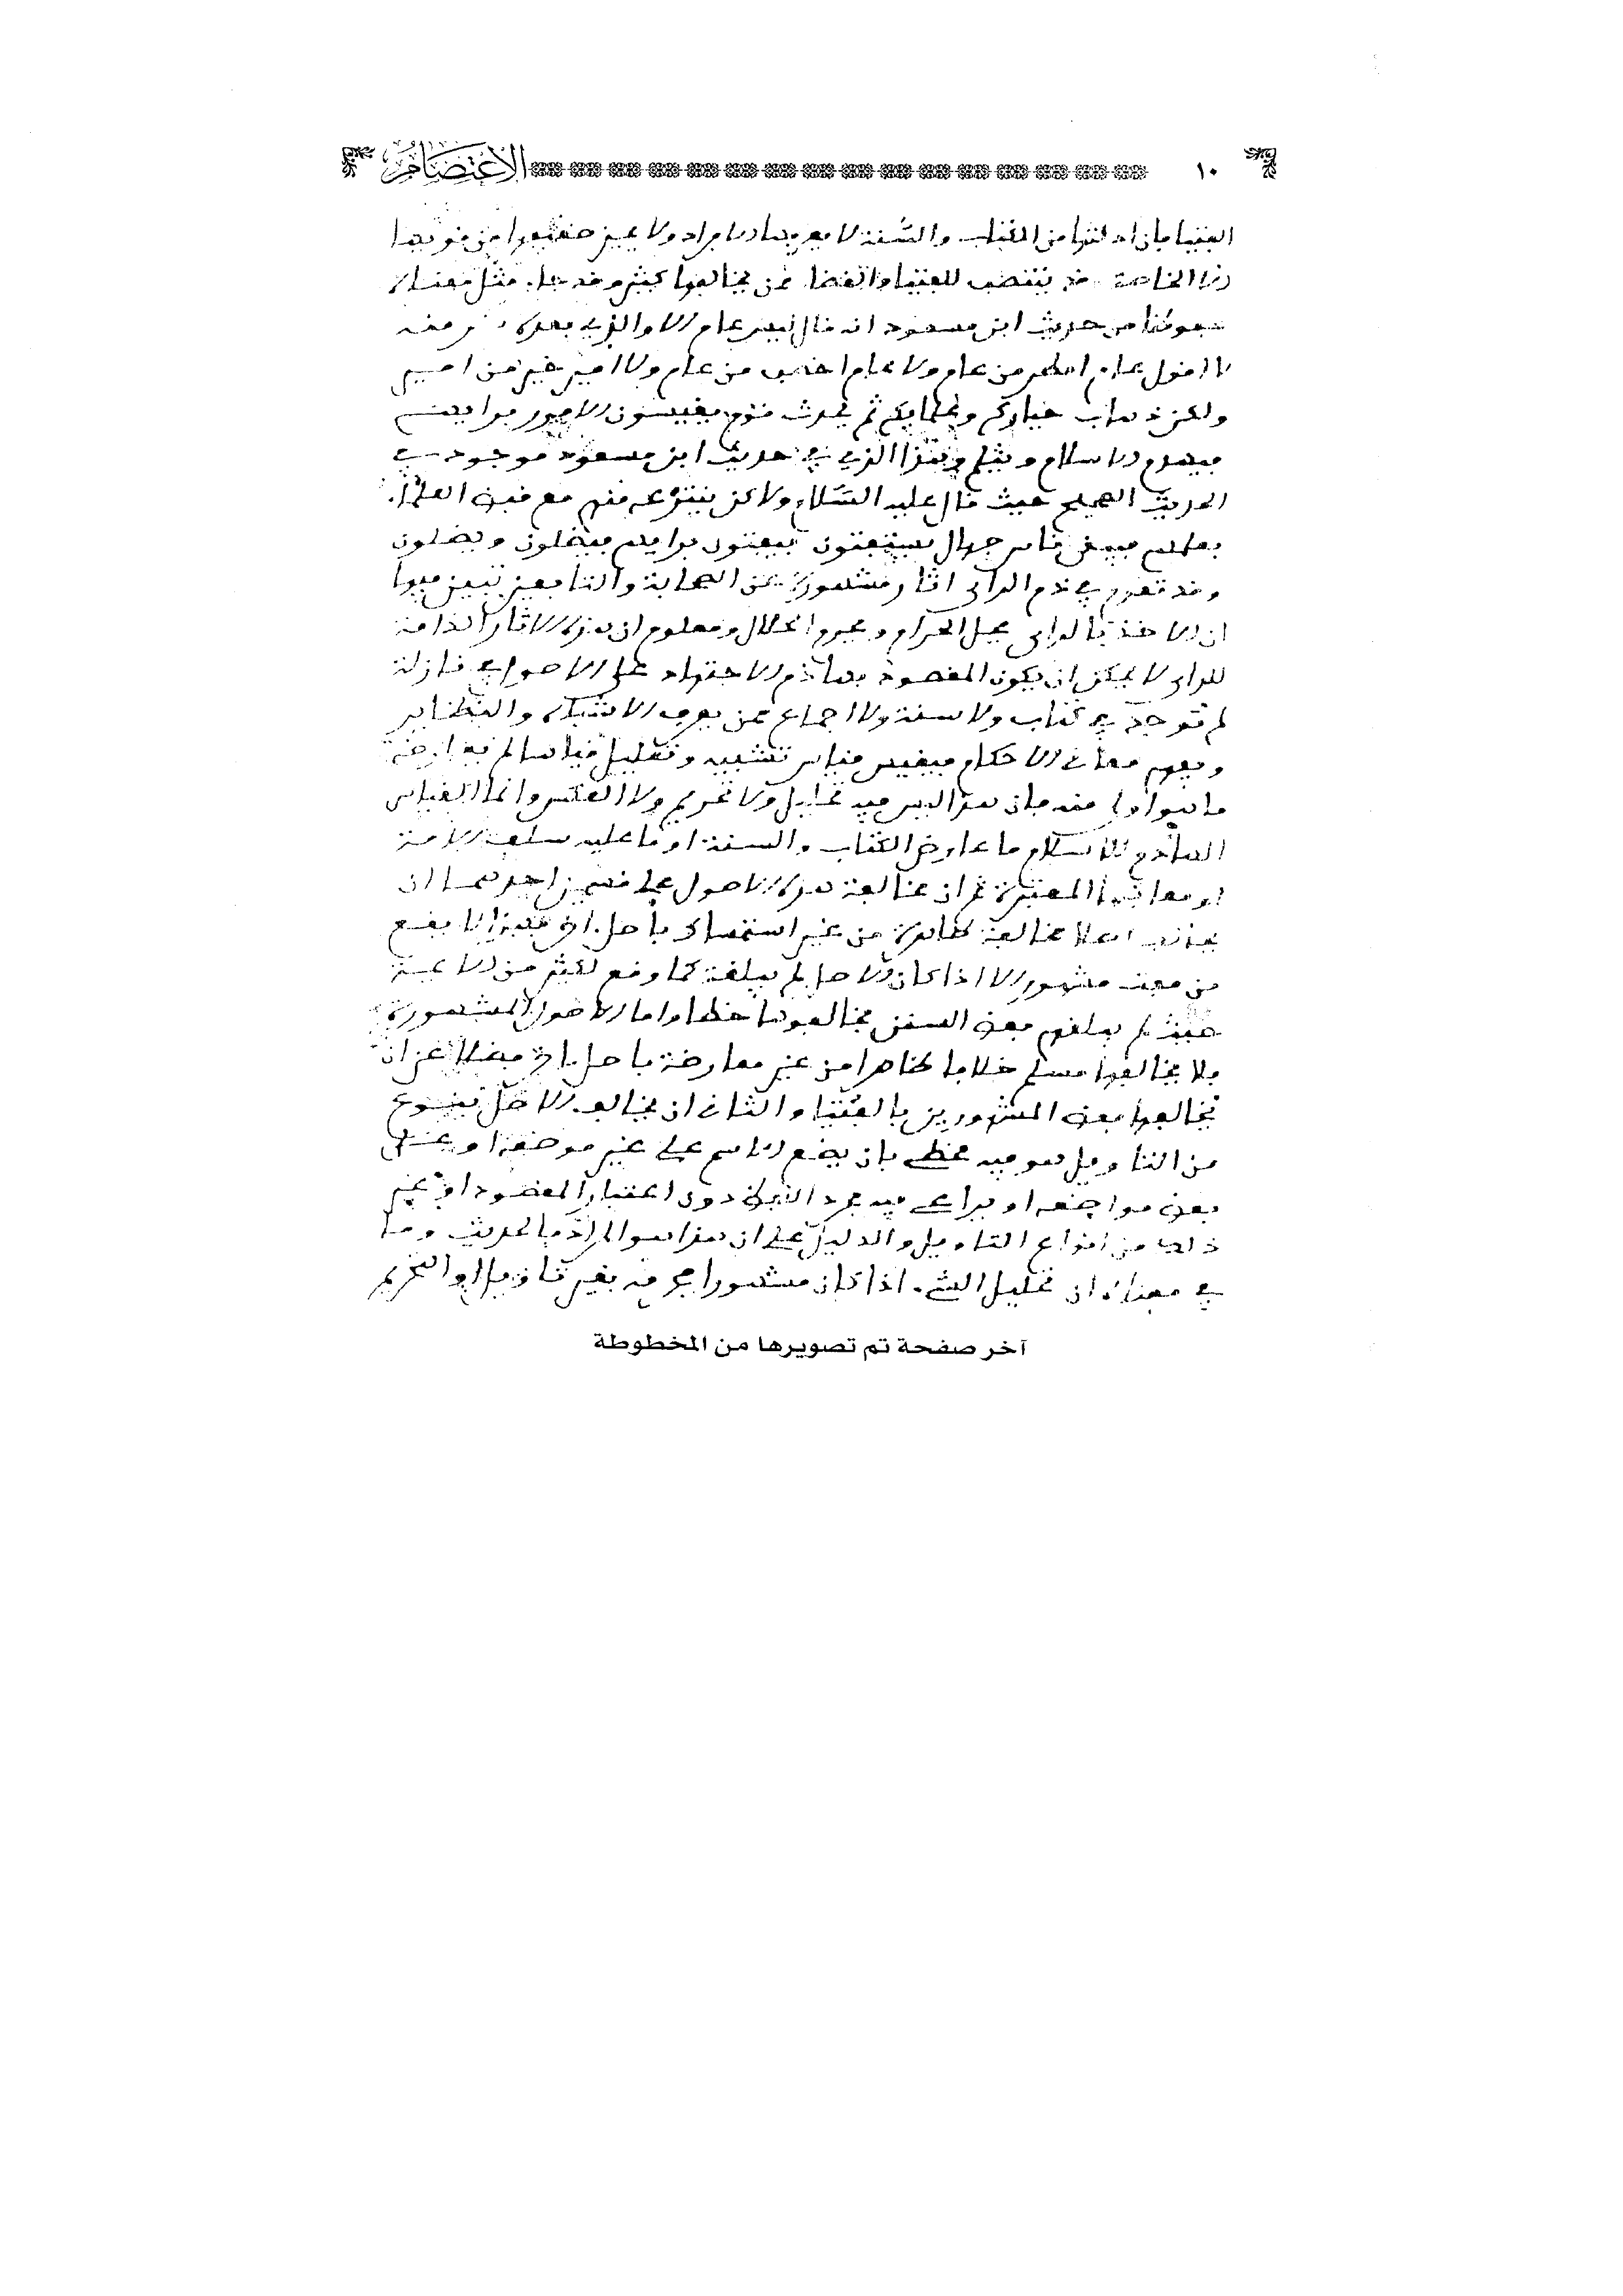 ١٠ الاعتصام
الفتيا فان ادلتها من الكتاب والسنة لا يعرفها الافراد ولا يميز ضعيفها من قويها
الا الخاصة وقد ينتصب للفتيا والقضا ممن يخالفها كثير وقد جاء مثل معناه
من حديث ابن مسعود انه قال ليس عام الا والذي بعده شر منه
لا اقول عام امطر من عام ولا عام اخصب من عام ولا امير خير من امير
ولكن ذهاب خياركم وعلمايكم ثم يحدث قوم يقيسون الامور برايهم
فيهدم الاسلام ويثلم وهذا الذي في حديث ابن مسعود موجود في
الحديث الصحيح حيث قال عليه السلام ولاكن ينتزعه منهم مع قبض العلماء
بعلمهم فيبقى ناس جهال يستفتون فيفتون برايهم فيضلون ويضلون
وقد تقدم في ذم الراى اثار مشهورة عن الصحابة والتابعين تبين فيها
ان الاخذ بالراى يحل الحرام ويحرم الحلال ومعلوم ان هذه الاثار الذامة
للراى لا يمكن ان يكون المقصود بها ذم الاجتهاد على الاصول في نازلة
لم توجد في كتاب ولا سنة ولا اجماع ممن يعرف الاشباه والنظاير
ويفهم معاني الاحكام فيقيس قياس تشبيه وتعليل قياسا لم يعارضه
ما هو اولى منه فان هذا ليس فيه تحليل ولا تحريم ولا العكس وانما القياس
الهادم للاسلام ما عارض الكتاب والسنة او ما عليه سلف الامة
او معانيها المعتبرة ثم ان مخالفة هذه الاصول على قسمين احدهما ان
يخالف اصلا مخالفة ظاهرة من غير استمساك باصل اخر فهذا لا يقع
من مفت مشهور الا اذا كان الاصل لم يبلغه كما وقع لكثير من الايمة
حيث لم يبلغهم بعض السنن فخالفوها خطا واما الاصول المشهورة
فلا يخالفها مسلم خلافا ظاهرا من غير معارضة باصل اخر فضلا عن ان
يخالفها بعض المشهورين بالفتيا والثاني ان يخالف الاصل بنوع
من التاويل هو فيه مخطئ بان يضع الاسم على غير موضعه او على
بعض مواضعه او يراعي فيه مجرد اللفظ دون اعتبار المقصود او غير
ذلك من انواع التاويل والدليل على ان هذا هو المراد بالحديث وما
في معناه ان تحليل الشيء اذا كان مشهورا فحرمه بغير تاويل او التحريم
آخر صفحة تم تصويرها من المخطوطة